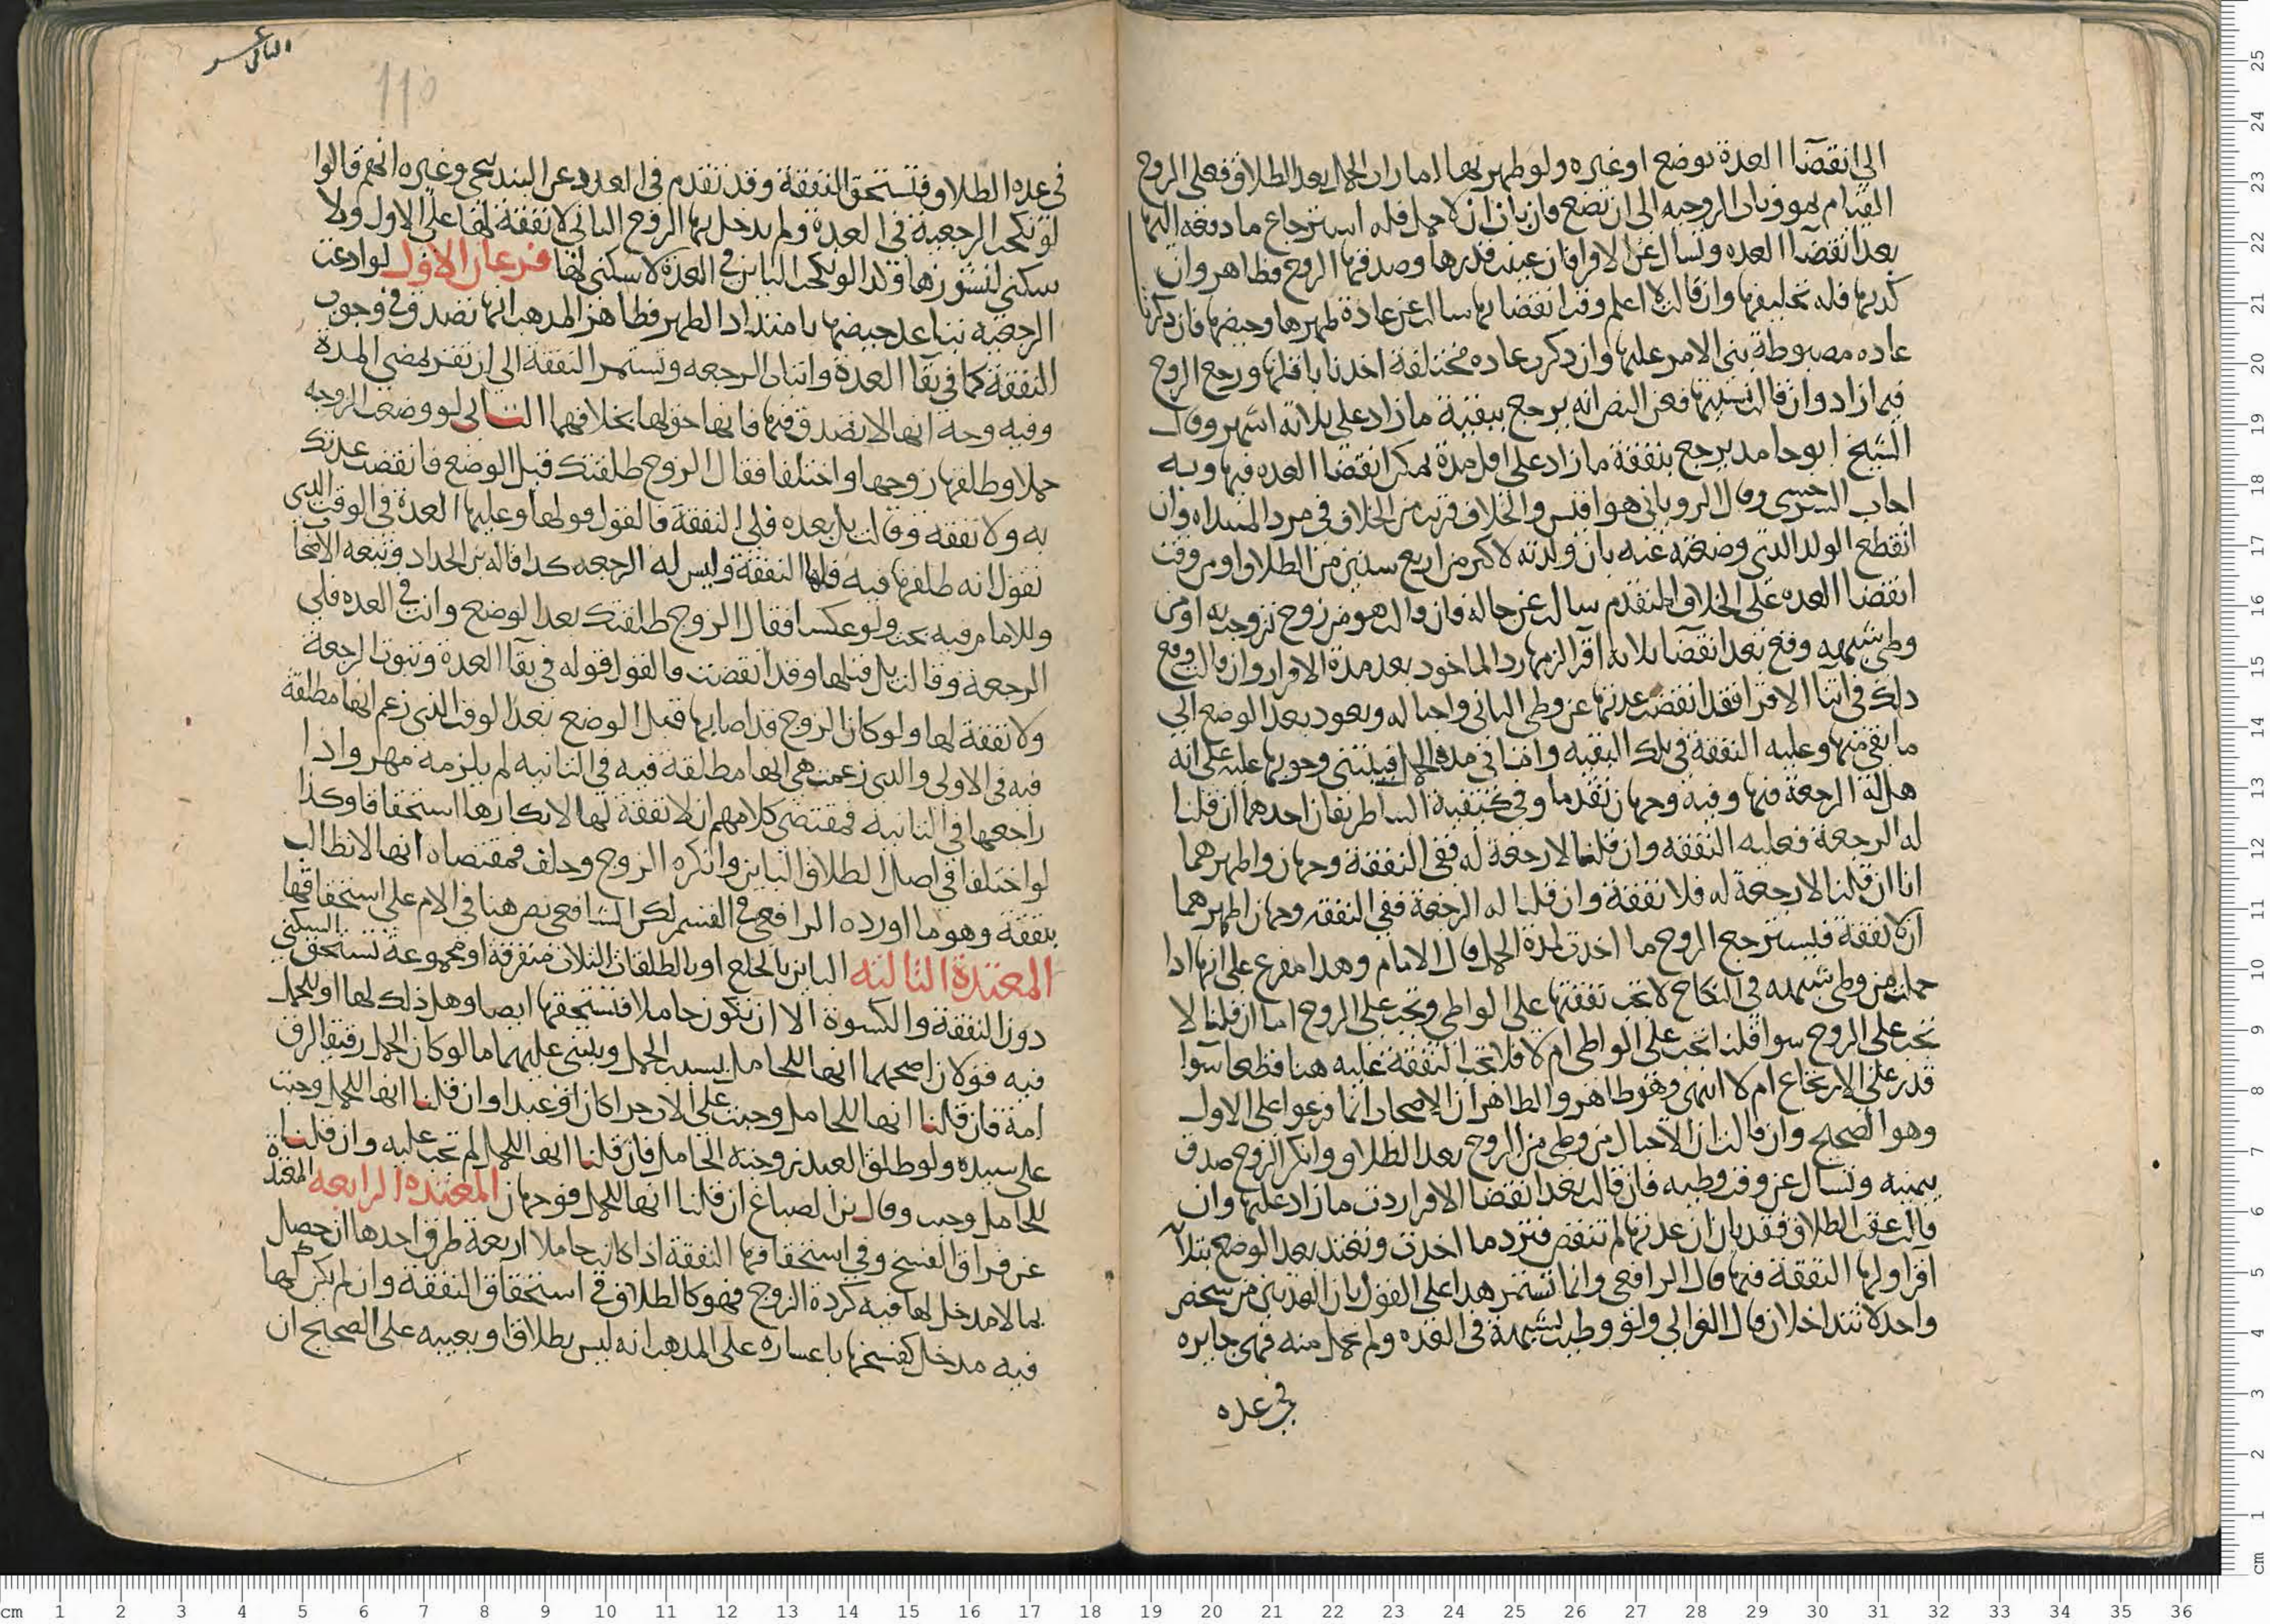 الى انقضآ العدة بوضع او غيره ولو ظهر بها امارات الحمل بعد الطلاق فعلى الزوج
القيام بمؤونات الزوجيه الى ان تضع فان بان ان لا حمل فله استرجاع ما دفعه اليها
بعد انقضآ العده وتسال عن الاقرا فان عينت قدرها وصدقها الزوج فظاهر وان
كذبها فله تحليفها وان قالت لا اعلم وقت انقضايها سالت عن عادة طهرها وحيضها فان ذكرت
عاده مضبوطة بنى الامر عليها وان ذكرت عاده مختلفة اخذنا باقلها ورجع الزوج
فيما زاد وان قالت نسيتها فعن النص انه يرجع ببقية ما زاد على ثلاثة اشهر وقال
الشيخ ابو حامد يرجع بنفقة ما زاد على اقل مدة يمكن انقضا العده فيها وبه
اجاب السرخسى وقال الرويانى هو اقيس والخلاف قريب من الخلاف فى مرد المبتداه وان
انقطع الولد الذى وضعته عنه بان ولدته لاكثر من اربع سنين من الطلاق او من وقت
انقضا العده على الخلاف المتقدم سالت عن حاله فان قالت هو من زوج تزوجت به او من
وطى شبهه وقع بعد انقضآ ثلاثه اقرا لزمها رد الماخوذ بعد مدة الاقرا وان قالت وقع
ذلك فى اثنا الاقرا فقد انقضت عدتها عن وطى الثانى واحباله ويعود بعد الوضع الى
ما بقى منها وعليه النفقة فى تلك البقيه واما فى مدة الحمل فيبتنى وجوبها عليه على انه
هل له الرجعة فيها وفيه وجهان تقدما وفى كيفية البنا طريقان احدهما ان قلنا
له الرجعة فعليه النفقه وان قلنا لا رجعة له ففى النفقة وجهان واظهرهما
انا ان قلنا لا رجعة له فلا نفقة وان قلنا له الرجعة ففى النفقه وجهان اظهرهما
ان لا نفقة فيسترجع الزوج ما اخذت لمدة الحمل قال الامام وهذا مفرع على انها اذا
حملت من وطى شبهه فى النكاح لا تجب نفقتها على الواطى وتجب على الزوج اما ان قلنا لا
تجب على الزوج سوا قلنا تجب على الواطى ام لا فلا تجب النفقة عليه هنا قطعا سوا
قدر على الارتجاع ام لا انتهى وهو ظاهر والظاهر ان الاصحاب انما فرعوا على الاول
وهو الصحيح وان قالت ان الاحبال من وطى من الزوج بعد الطلاق وانكر الزوج صدق
بيمينه وتسال عن وقت وطيه فان قالت بعد انقضا الاقرا ردت ما زاد عليها وان
قالت عقب الطلاق فقد بان ان عدتها لم تنقض فترد ما اخذت وتعتد بعد الوضع بثلاثه
اقرا ولها النفقة فيها قال الرافعى وانما تستمر هذا على القول بان العدتين من شخص
واحد لا تتداخلان قال الغزالى ولو وطيت بشبهة فى العده ولم تحمل منه فهى جايره
فى عده
الثانى عشر
110
فى عده الطلاق فتستحق النفقة وقد تقدم فى العدد عن البندنيجى وغيره انهم قالوا
لو نكحت الرجعية فى العدة ولم يدخل بها الزوج الثانى لا نفقة لها على الاول ولا
سكنى لنشوزها وكذا لو نكحت الباين فى العدة لا سكنى لها فرعان الاول لو ادعت
الرجعيه تباعد حيضها بامتداد الطهر فظاهر المذهب انها تصدق فى وجوب
النفقة كما فى بقآ العدة واثبات الرجعه وتستمر النفقة الى ان تقر بمضى المدة
وفيه وجه انها لا تصدق فيها فانها حق لها بخلافهما الثانى لو وضعت الزوجه
حملا وطلقها زوجها واختلفا فقال الزوج طلقتك قبل الوضع فانقضت عدتك
به ولا نفقه وقالت بل بعده فلى النفقة فالقول قولها وعليها العدة فى الوقت الذى
تقول انه طلقها فيه فلها النفقة وليس له الرجعه كذا قاله بن الحداد وتبعه الاصحاب
وللامام فيه بحث ولو عكسا فقال الزوج طلقتك بعد الوضع وانت فى العده فلى
الرجعة وقالت بل قبلها وقد انقضت فالقول قوله فى بقآ العدة وثبوت الرجعة
ولا نفقة لها ولو كان الزوج قد اصابها قبل الوضع بعد الوقت الذى زعم انها مطلقة
فيه فى الاولى والذى زعمت هى انها مطلقة فيه فى الثانيه لم يلزمه مهر واذا
راجعها فى الثانيه فمقتضى كلامهم ان لا نفقة لها لانكارها استحقاقا وكذا
لو اختلفا فى اصل الطلاق الباين وانكره الزوج وحلف فمقتضاه انها لا تطالب
بنفقة وهو ما اورده الرافعى فى القسم لكن الشافعى نص هنا فى الام على استحقاقها
المعتدة الثالثه الباين بالخلع او بالطلقات الثلاث متفرقة او مجموعة تستحق السكنى
دون النفقة والكسوة الا ان تكون حاملا فتستحقها ايضا وهل ذلك لها او للحمل
فيه قولان اصحهما انها للحامل بسبب الحمل ويبنى عليهما ما لو كان الحمل رقيقا لرق
امه فان قلنا انها للحامل وجبت على الاب حرا كان او عبدا وان قلنا انها للحمل وجبت
على سيده ولو طلق العبد زوجته الحامل فان قلنا انها للحمل لم تجب عليه وان قلنا
للحامل وجبت وقال بن الصباغ ان قلنا انها للحمل فوجهان المعتده الرابعه المعتدة
عن فراق الفسخ وفى استحقاقها النفقة اذا كانت حاملا اربعة طرق احدها ان حصل
بما لا مدخل لها فيه كردة الزوج فهو كالطلاق فى استحقاق النفقة وان لم يكن لها
فيه مدخل كفسخها باعساره على المذهب انه ليس بطلاق او بعيبه على الصحيح ان